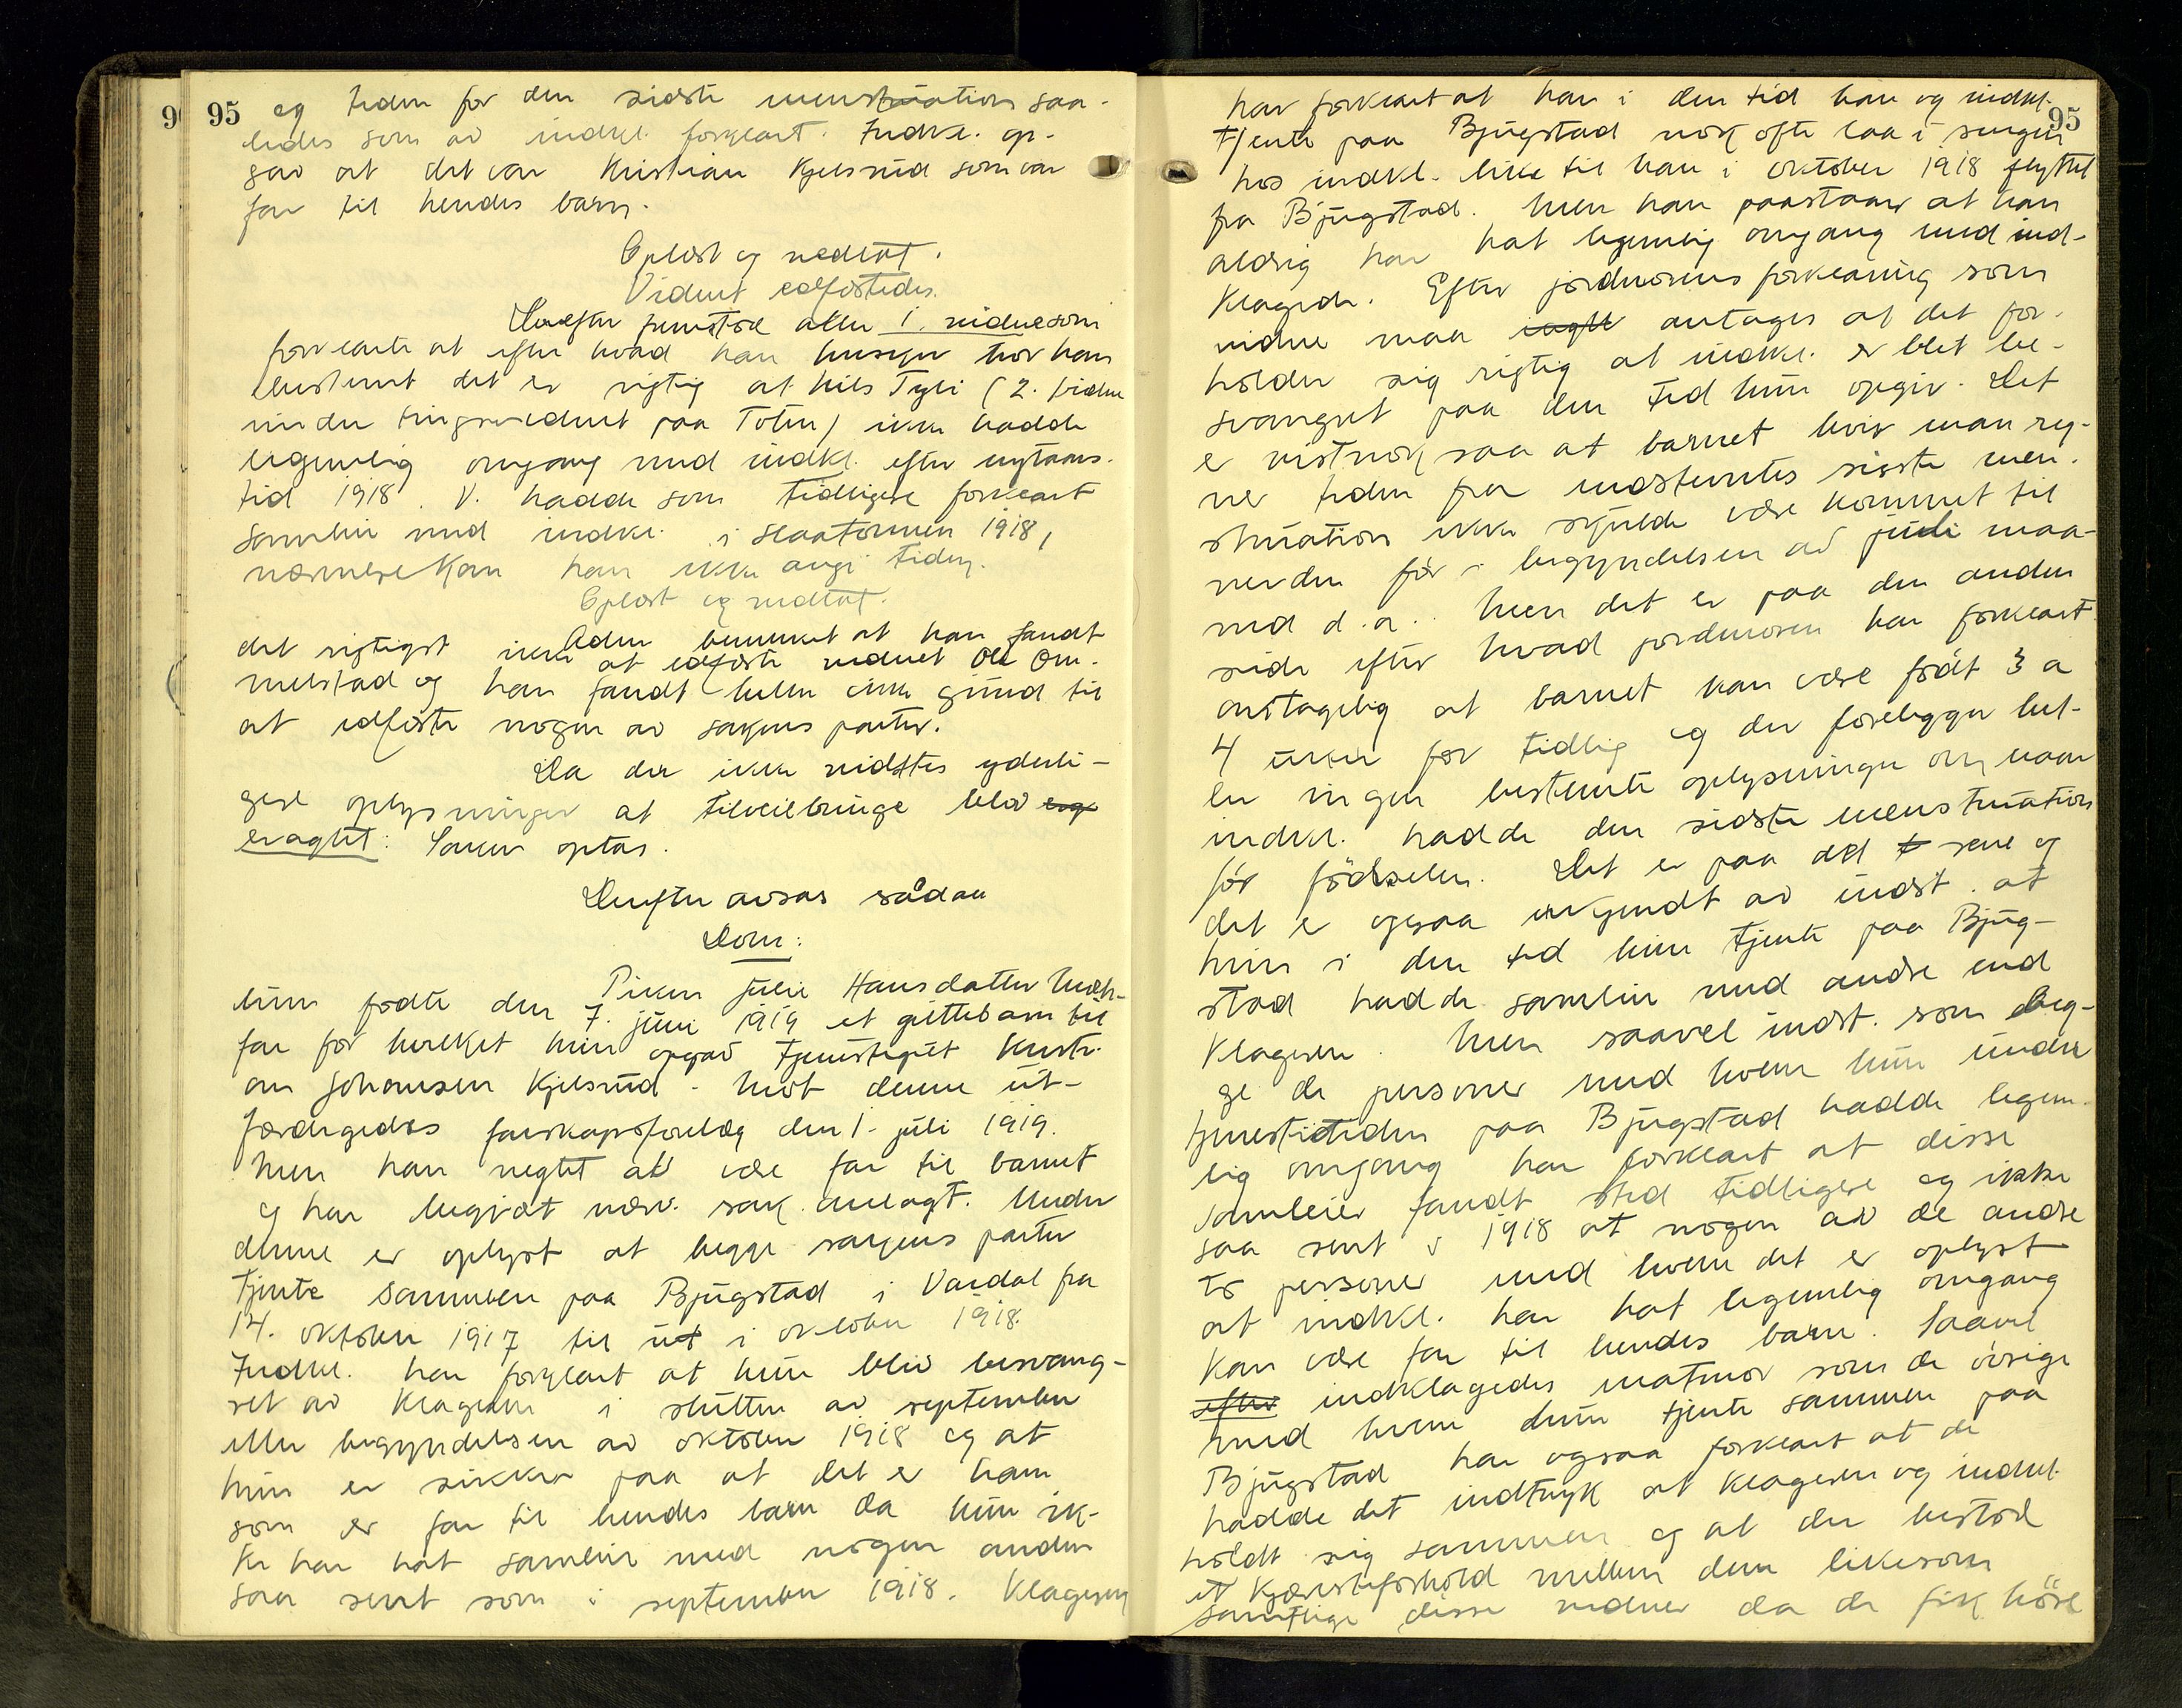 95
og tiden for den sidste menstruation saa-
ledes som av indkl. forklart. Indkl. op-
gav at det var Kristian Kjelsrud som var
far til hendes barn.
Oplæst og vedtat.
Vidnet edfæstedes.
Derefter fremstod atter 1. vidne som
forklarte at efter hvad han husker tror han
bestemt det er rigtig at Nils Tyli (2. vidne
under tingsvidnet paa Toten) ikke hadde
legemlig omgang med indkl. efter nytaars-
tid 1918. V. hadde som tidligere forklart
samleie med indkl. i slaatonnen 1918,
nærmere kan han ikke angi tiden.
Oplæst og vedtat.
Adm. bemerket at han fandt
det rigtigst ikke at edfæste vidnet Ole Om-
melstad og han fandt heller ikke grund til
at edfæste nogen av sakens parter.
Da der ikke vidstes yderli-
gere oplysninger at tilveiebringe blev
eragtet: Saken optas.
Derefter avsas sådan
Dom:
Piken Julie Hansdatter
hun fødte den 7. juni 1919 et guttebarn til
far for hvilket hun opgav tjenestegut Kristi-
an Johansen Kjelsrud. Mot denne ut-
færdigedes farskapsforelæg den 1. juli 1919.
Men han negtet at være far til barnet
og har begjært nærv. sak anlagt. Under
denne er oplyst at begge sakens parter
tjente sammen paa Bjugstad i Vardal fra
14. oktober 1917 til ut i oktober 1918.
Indkl. har forklart at hun blev besvang-
ret av klageren i slutten av september
eller begyndelsen av oktober 1918 og at
hun er sikker paa at det er ham
som er far til hendes barn da hun ik-
ke har hat samleie med nogen anden
saa sent som i september 1918. Klageren
95
har forklart at han i den tid han og indkl.
tjente paa Bjugstad nok ofte laa i sengen
hos indkl. like til han i oktober 1918 flyttet
fra Bjugstad. Men han paastaar at han
aldrig har hat legemlig omgang med ind-
klagede. Efter jordmorens forklaring som
vidne maa antages at det for-
holder sig rigtig at indkl. er blet be-
svangret paa den tid hun opgir. Det
er vistnok saa at barnet hvis man reg-
ner tiden fra indstevntes sidste men-
struation ikke skulde være kommet til
verden før i begyndelsen av juli maa-
ned d.a.. Men det er paa den anden
side efter hvad jordmoren har forklart
antagelig at barnet kan være født 3 a
4 uker for tidlig og der foreligger hel-
ler ingen bestemte oplysninger om naar
indkl. hadde den sidste menstruation
før fødselen. Det er paa det rene og
det er ogsaa erkjendt av indst. at
hun i den tid hun tjente paa Bjug-
stad hadde samleie med andre end
klageren. Men saavel indst. som beg-
ge de personer med hvem hun under
tjenestetiden paa Bjugstad hadde legem-
lig omgang har forklart at disse
samleier fandt sted tidligere og ikke
saa sent i 1918 at nogen av de andre
to personer med hvem det er oplyst
at indkl. har hat legemlig omgang
kan være far til hendes barn. Saavel
efter indklagedes matmor som de øvrige
med hvem hun tjente sammen paa
Bjugstad har ogsaa forklart at de
hadde det indtryk at klageren og indkl.
holdt sig sammen og at der bestod
et kjæresteforhold mellem dem likesom
samtlige disse vidner da de fik høre